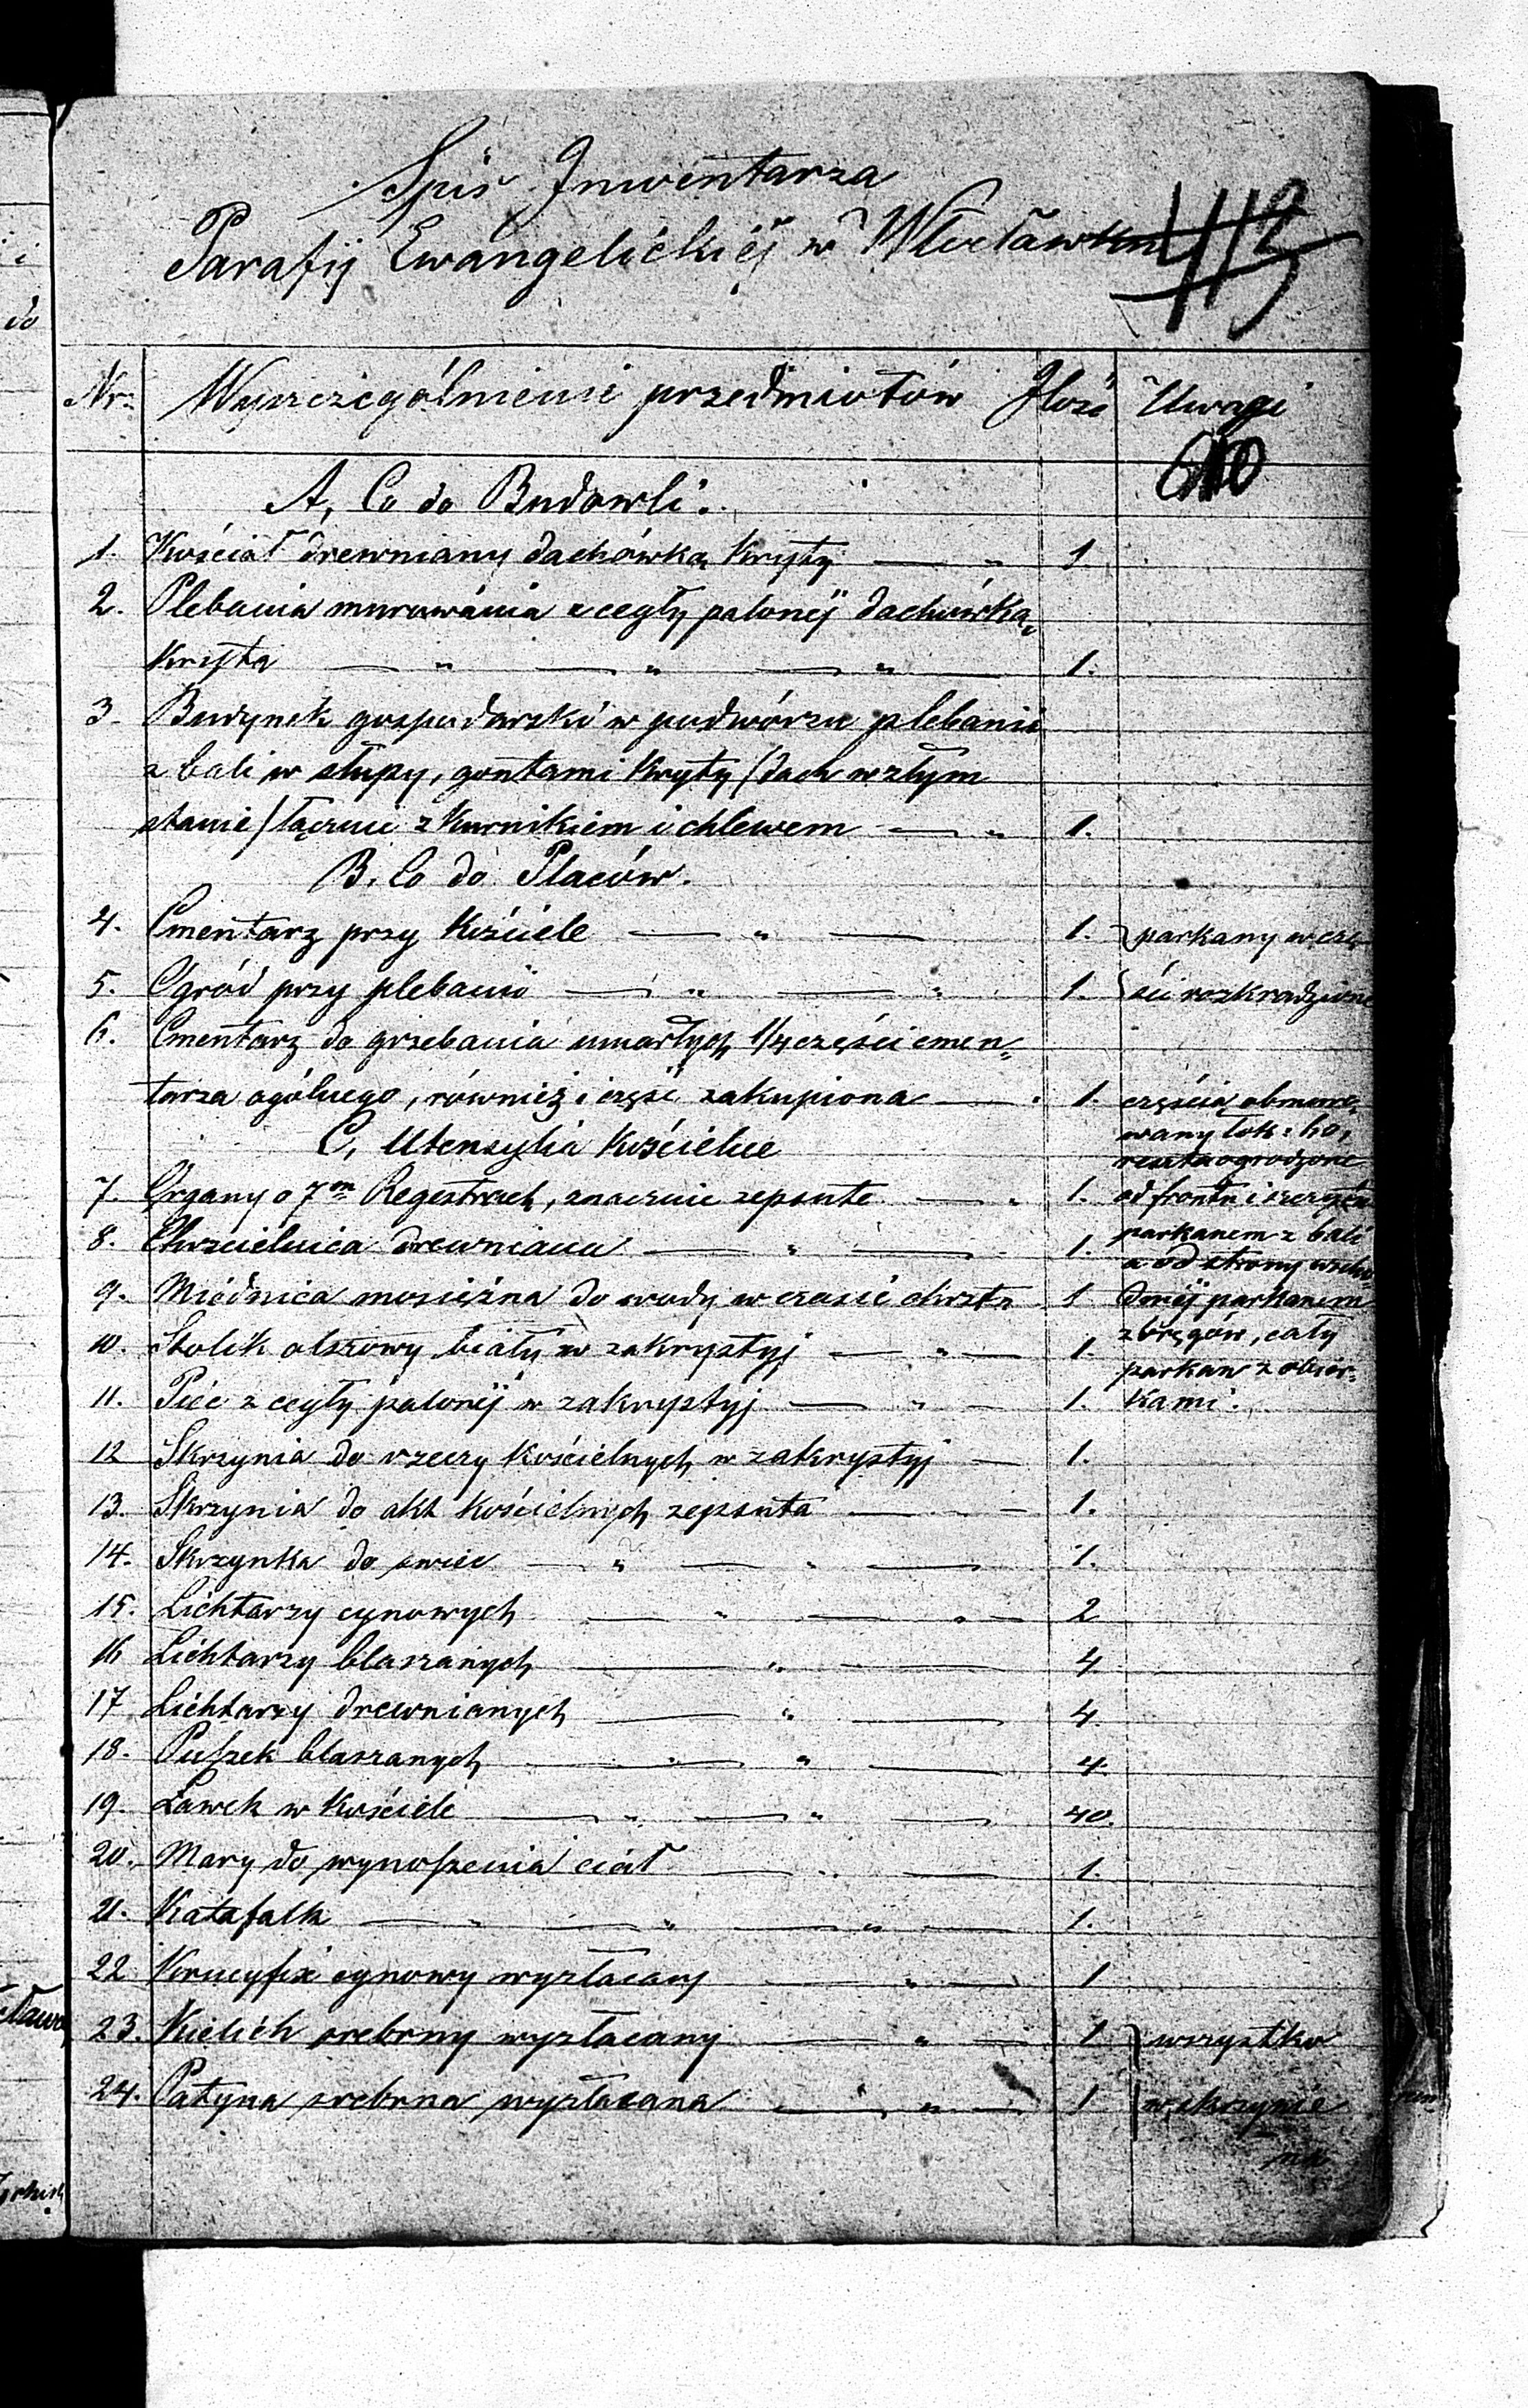 Spis Inwentarza
Parafij Ewangelickiej w Włocławku
113
Nr. Wyszczególnienie przedmiotów Ilość Uwagi
A, Co do Budowli.
1. Kościół drewniany dachówką kryty — " 1
2. Plebania murowania z cegły palonej dachówką,
kryta — " — " — " 1.
3. Budynek gospodarski w podwórzu plebanii
z bali w słupy, gontami kryty (dach w złym
stanie) łącznie z kurnikiem i chlewem — " 1.
B. Co do Placów.
4. Cmentarz przy kościele — " — 1. parkany w czę-
5. Ogród przy plebanii — " — " 1. ści rozkradzione
6. Cmentarz do grzebania umarłych 1/4 części cmen„
tarza ogólnego, również i część zakupiona — " 1. częścią obmuro„
wany łok:
reszta ogrodzone
C, Utensylia kościelne
7. Organy o 7m Regestrach, znacznie zepsute — " 1. od frontu i szczytu
8. Chrzcielnica drewniana — " — 1. parkanem z bali
a od strony wscho
9. Miednica mosiężna do wody w czasie chrztu 1 dniej parkanem
10. Stolik olszowy biały w zakrystyj — " — 1. cały
parkan z
11. Piec z cegły palonej w zakrystyj — " — 1. kami.
12 Skrzynia do rzeczy kościelnych w zakrystyj — 1.
13. Skrzynia do akt kościelnych zepsuta — " — 1.
14. Skrzynka do swiec — " — " — 1.
15. Lichtarzy cynowych — " — " — 2
16 Lichtarzy blaszanych — " — 4
17 Lichtarzy drewnianych — " — 4.
18. Puszek blaszanych — " — " — 4.
19. Ławek w kościele — " — " — 40.
20. Mary do wynoszenia ciał — " — 1.
21. Katafalk — " — " — " — 1.
22 Krucyfix cynowy wyzłacany — " — 1
23. Kielich srebrny wyzłacany — " — 1 wszystko
24. Patyna srebrna wyzłacana — " — 1 w skrzynie